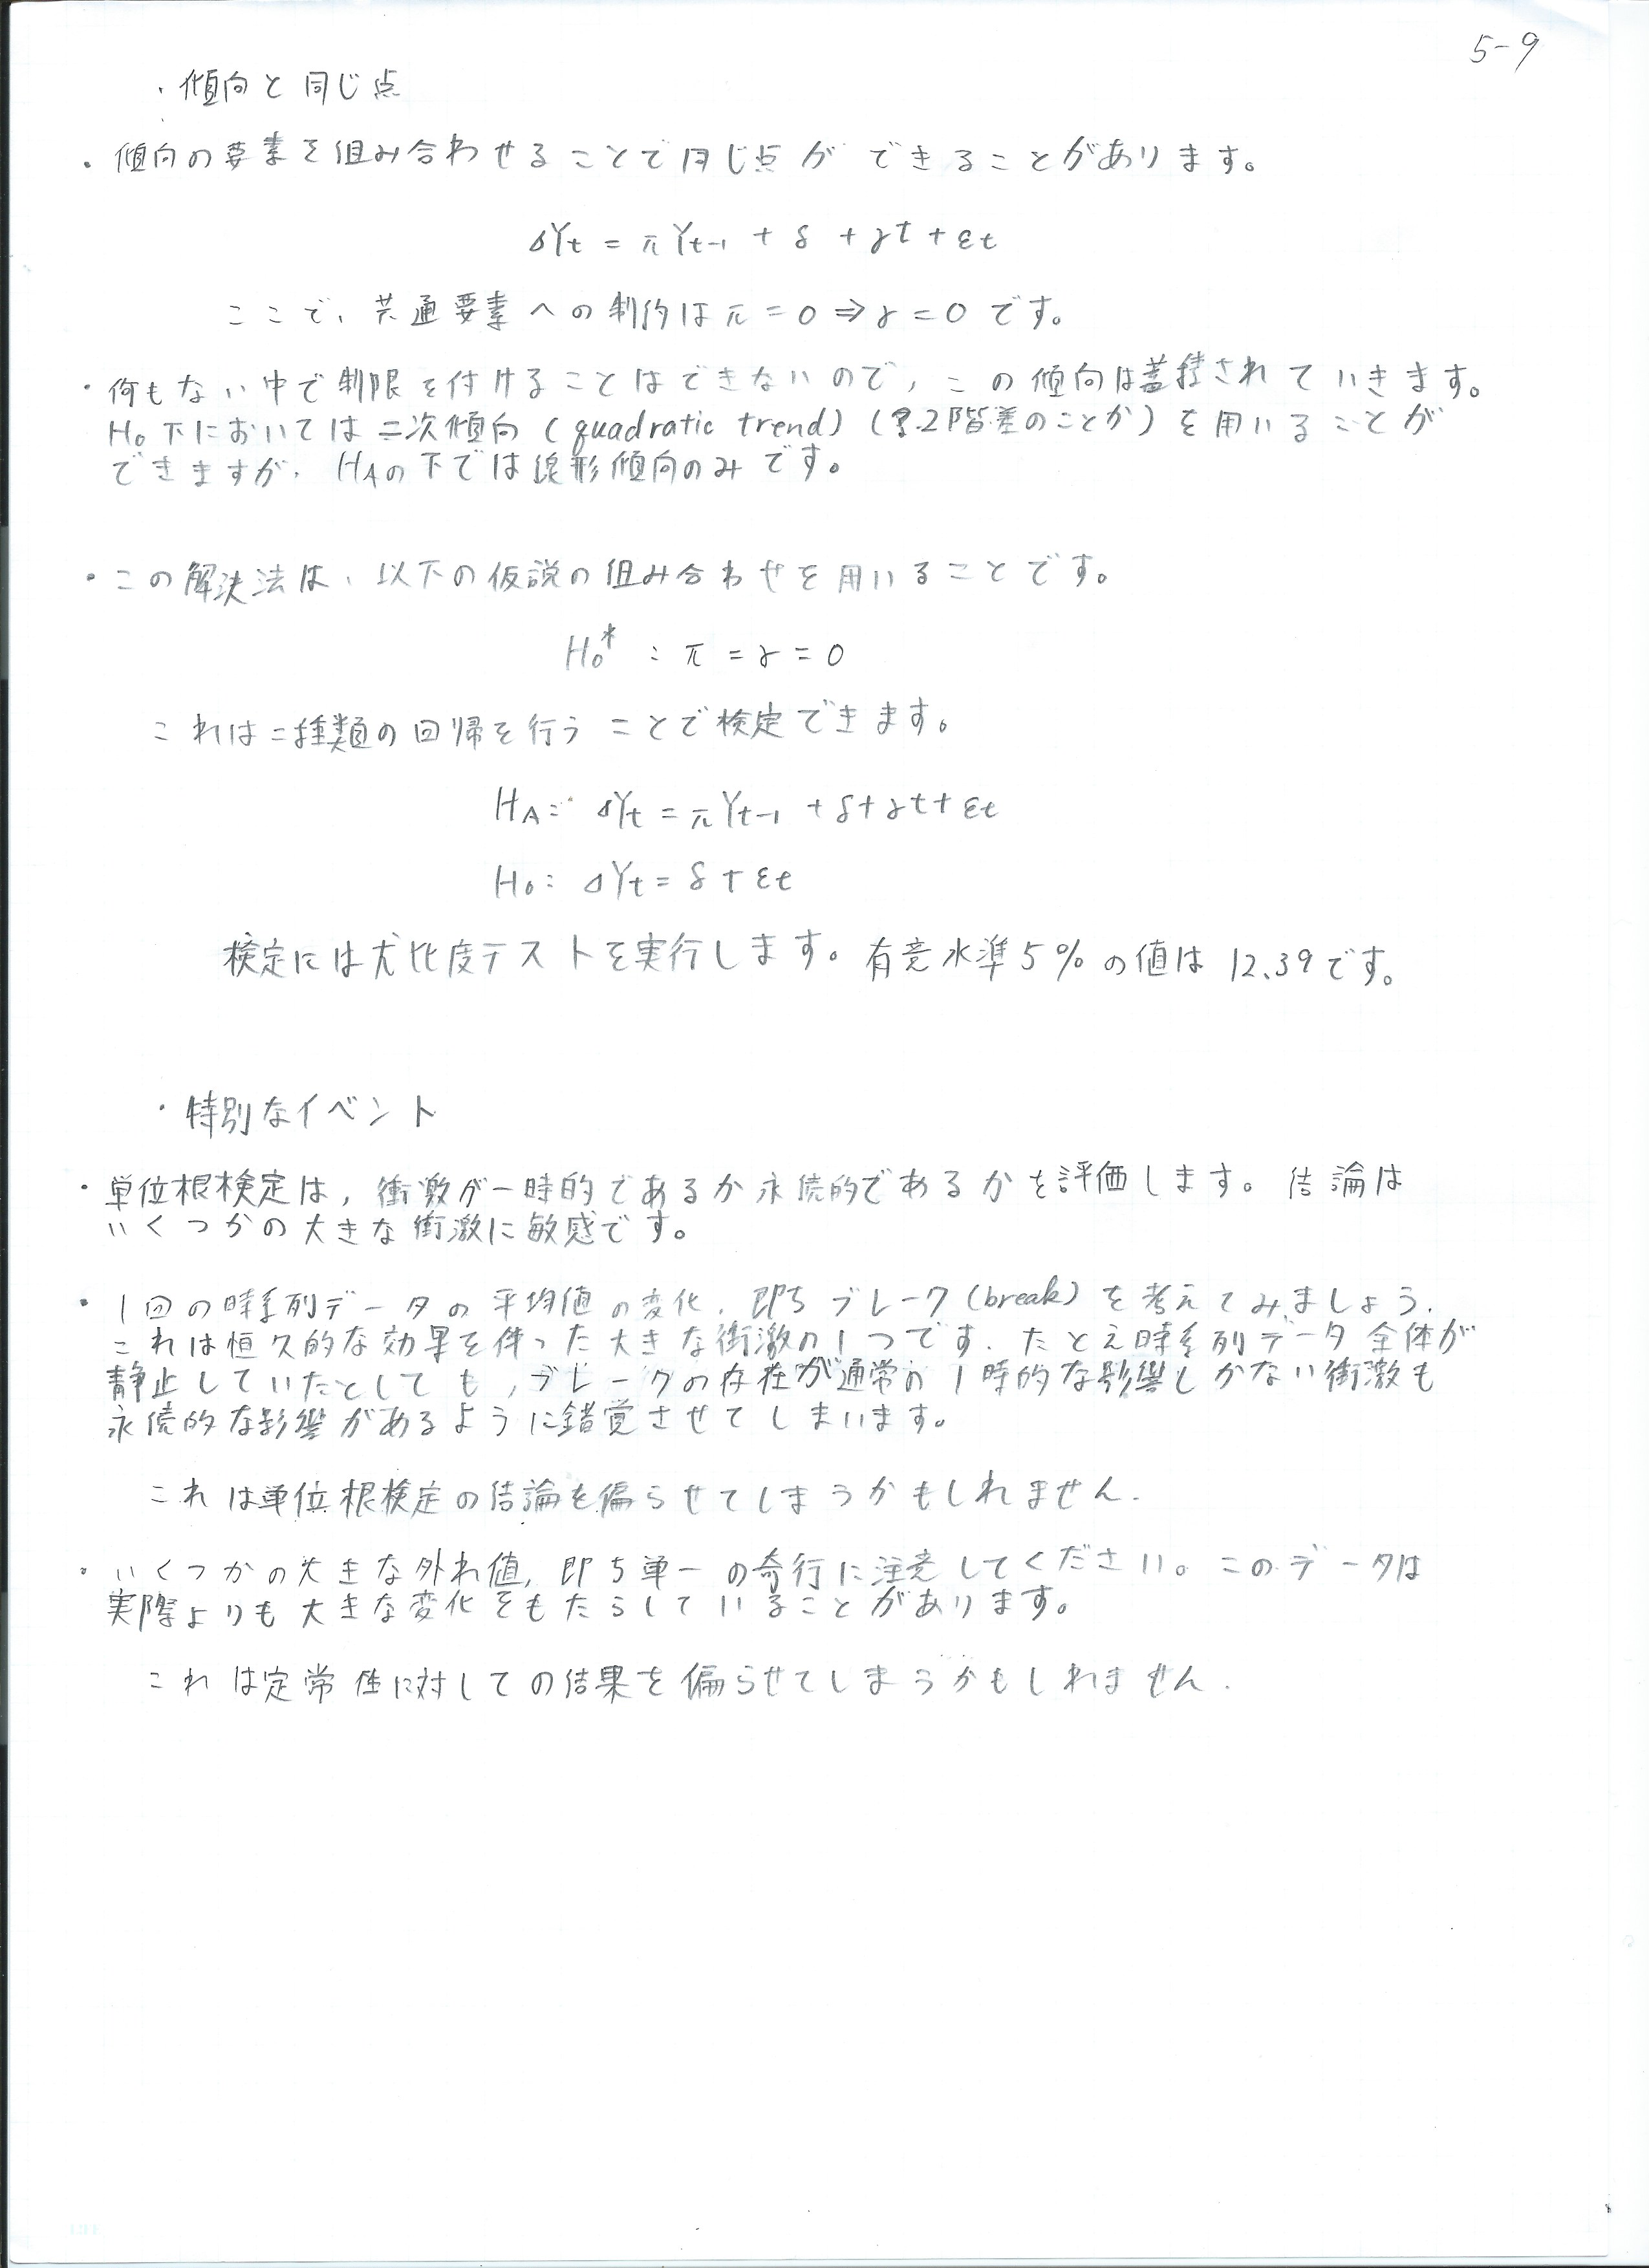 5-9
・傾向と同じ点
・傾向の要素を組み合わせることで同じ点ができることがあります。
ΔYt = πYt-1 + δ + γt + εt
ここで、共通要素への制約はπ = 0 ⇒ γ = 0 です。
・何もない中で制限を付けることはできないので, この傾向は蓄積されていきます。
H₀下においては二次傾向 (quadratic trend) (?2階差のことか) を用いることが
できますが、HAの下では線形傾向のみです。
・この解決法は、以下の仮説の組み合わせを用いることです。
H₀* : π = γ = 0
これは二種類の回帰を行うことで検定できます。
HA: ΔYt = πYt-1 + δ + γt + εt
H₀: ΔYt = δ + εt
検定には尤比度テストを実行します。有意水準5%の値は 12.39です。
・特別なイベント
・単位根検定は, 衝激が一時的であるか永続的であるかを評価します。結論は
いくつかの大きな衝激に敏感です。
・1回の時系列データの平均値の変化, 即ちブレーク(break)を考えてみましょう.
これは恒久的な効果を伴った大きな衝激の1つです. たとえ時系列データ全体が
静止していたとしても, ブレークの存在が通常の1時的な影響しかない衝激も
永続的な影響があるように錯覚させてしまいます。
これは単位根検定の結論を偏らせてしまうかもしれません.
・いくつかの大きな外れ値, 即ち単一の奇行に注意してください。このデータは
実際よりも大きな変化をもたらしていることがあります。
これは定常性に対しての結果を偏らせてしまうかもしれません.